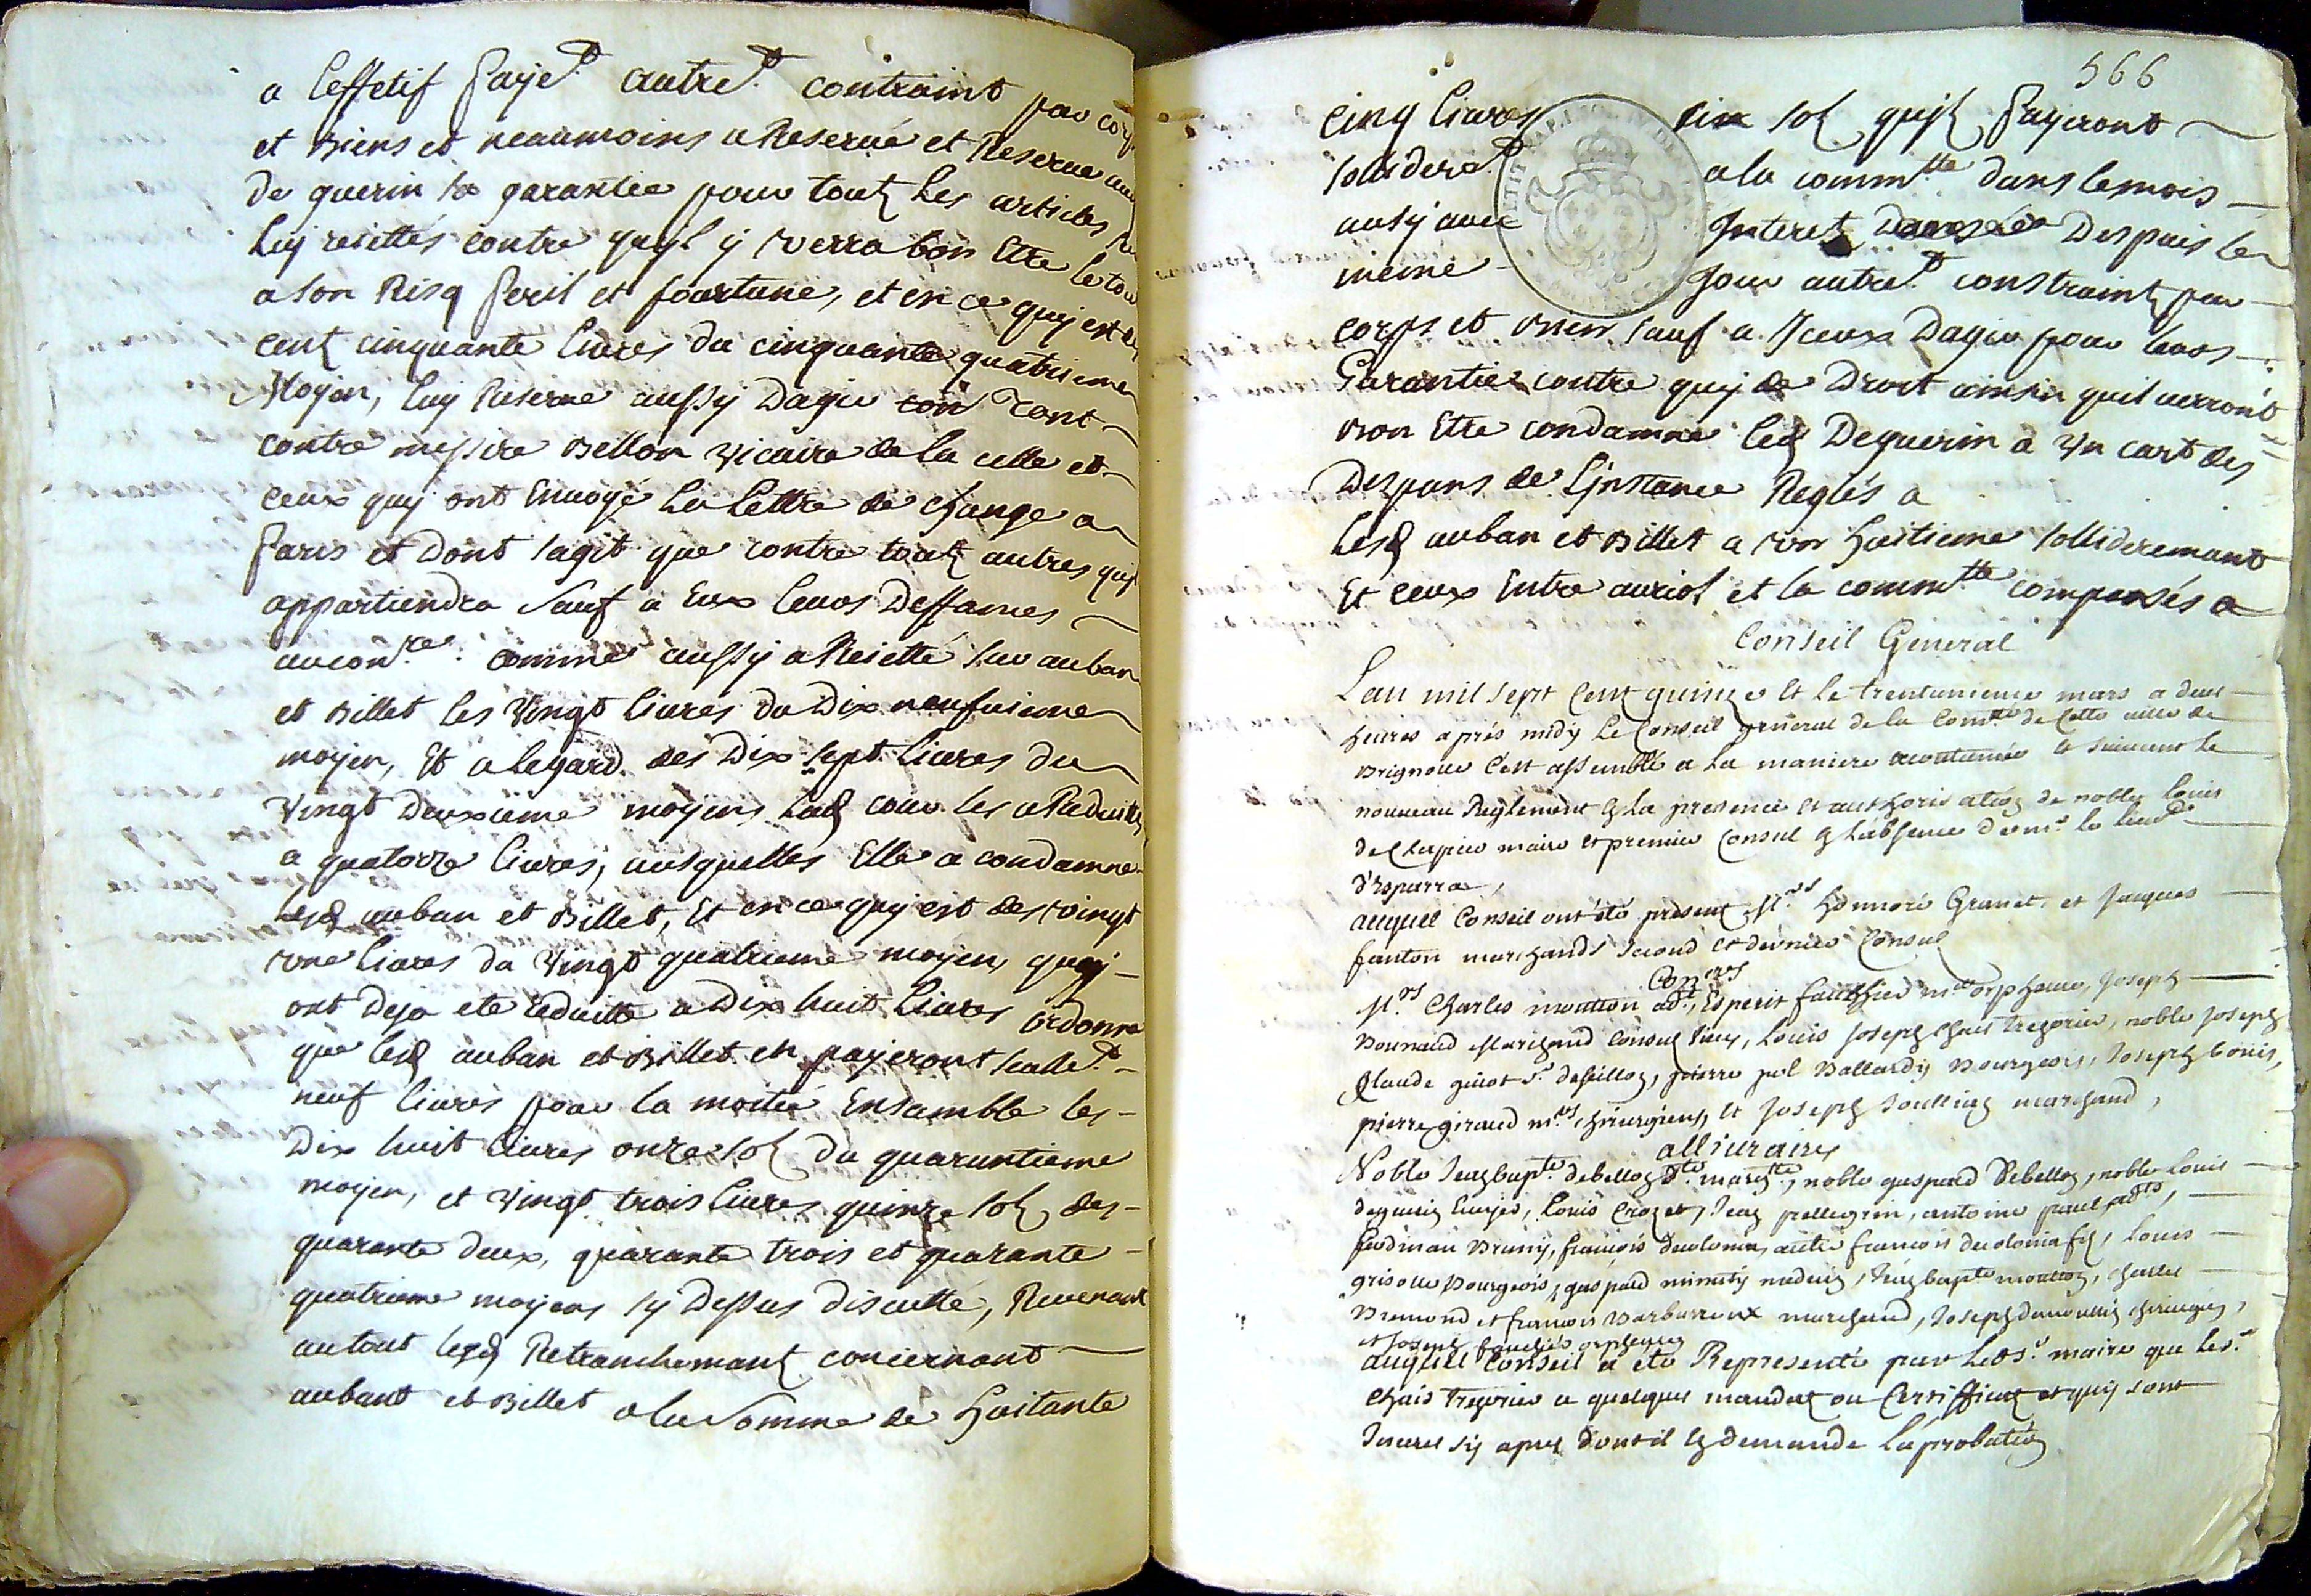 a Leffetif paye.t autre.t contraint par corps
et Biens et neaumoins a Reservé et Reserve aud
de guerin sa garantie pour touts les articles
Luy reiettés contre quy Il y verra bon Etre le tout
a son Risq peril et fourtune, et en ce quy est des
cent cinquante Livres du cinquante quatrieme
Moyen, Luy Reserve aussy Dagir tant
contre messire Bellon vicaire de La celle et
ceux quy ont Envoyé La Lettre de change a
Paris et Dont sagit que contre touts autres quil
appartiendra Sauf a Eux leurs Deffances
au con.re comme aussy a Reietté sur auban
et Billet les Vingt livres du Dix neufvieme
moyen, Et a legard des Dix sept Livres du
Vingt Deuxieme moyens Lad cour les a Reduittes
a quatorze livres, ausquelles Elle a condamné
Lesd auban et Billet, Et en ce quy est des vingt
une livres du Vingt quatrieme moyen, quy
ont Deja ete Reduitte a Dix huit Livres ordonne
que lesd auban et Billet en payeront seulle.t
neuf livres pour la moitié Ensamble les
Dix huit livres onze sols du quaruntieme
moyen, et Vingt trois Livres quinze sols des
quarante deux, quarante trois et quarante
quatrieme moyens sy Dessus discutté, Revenant
autout lesd Retranchemant concernant
aubant et Billet a la Somme de Huitante
566
cinq livres six sols quils payeront
sollidere.t a la comm.tte dans le mois
ausy avec Interet Despuis le
meme Jour autre.t constraints par
corps et Bien sauf a Iceux Dagir pour leurs
Garanties contre quy de Droit ainsin quil verront
Bon Etre condamne led Deguerin a Un cart des
Despans de Linstance Reglés a
Lesd auban et Billet a un Huitieme sollideremant
Et ceux Entre auriol et la comm.tte compensés a
Conseil General
Lan mil sept cent quinze et le trentunieme mars a deux
heures après midy Le Conseil general de la Com.tté de Cette ville de
Brignolle s'est assemblé a la maniere acoutumée et suivant le
nouveau Reglement en La presence et authorisation de noble louis
de Clapier maire et premier Consul en Labsence de m.r le lieut.
d'Esparra,
auquel Conseil ont été present M.rs Honnoré Granet, et Jacques
fanton marchands second et dernier Consul
Con.ers
M.rs Charles moutton ad.t, Esperit fauchier m.e orpheure, Joseph
Bounaud Marchand Consul vieux, Louis Joseph Chais trezorier, noble Joseph
Claude guiot s.r , pierre pol Ballardy Bourgeois, Joseph bouis,
pierre giraud m.rs chirurgiens, et Joseph Soullier marchand,
alliuraires
Noble Jean bap.te debellon s.r marg.tte, noble gaspard Debellon, noble louis
deguerin Ecuyer, Louis Crozet, Jean pellegrin, antoine paul ad.ts,
ferdinan Bruny, françois decolonia, autre françois decolonia fils, Louis
grisolle Bourgeois, gaspard minuty medecin, Jean bapte moutton, charles
Bremond et francois Barbarroux marchand, Joseph chirurgien,
et Joseph fauchier orpheure
auquel Conseil a été Representé par led s.r maire que le s.r
Chais trezorier a quelques mandats ou Certifficats et quy sont
Inserés sy apres dont il en demande l'aprobation